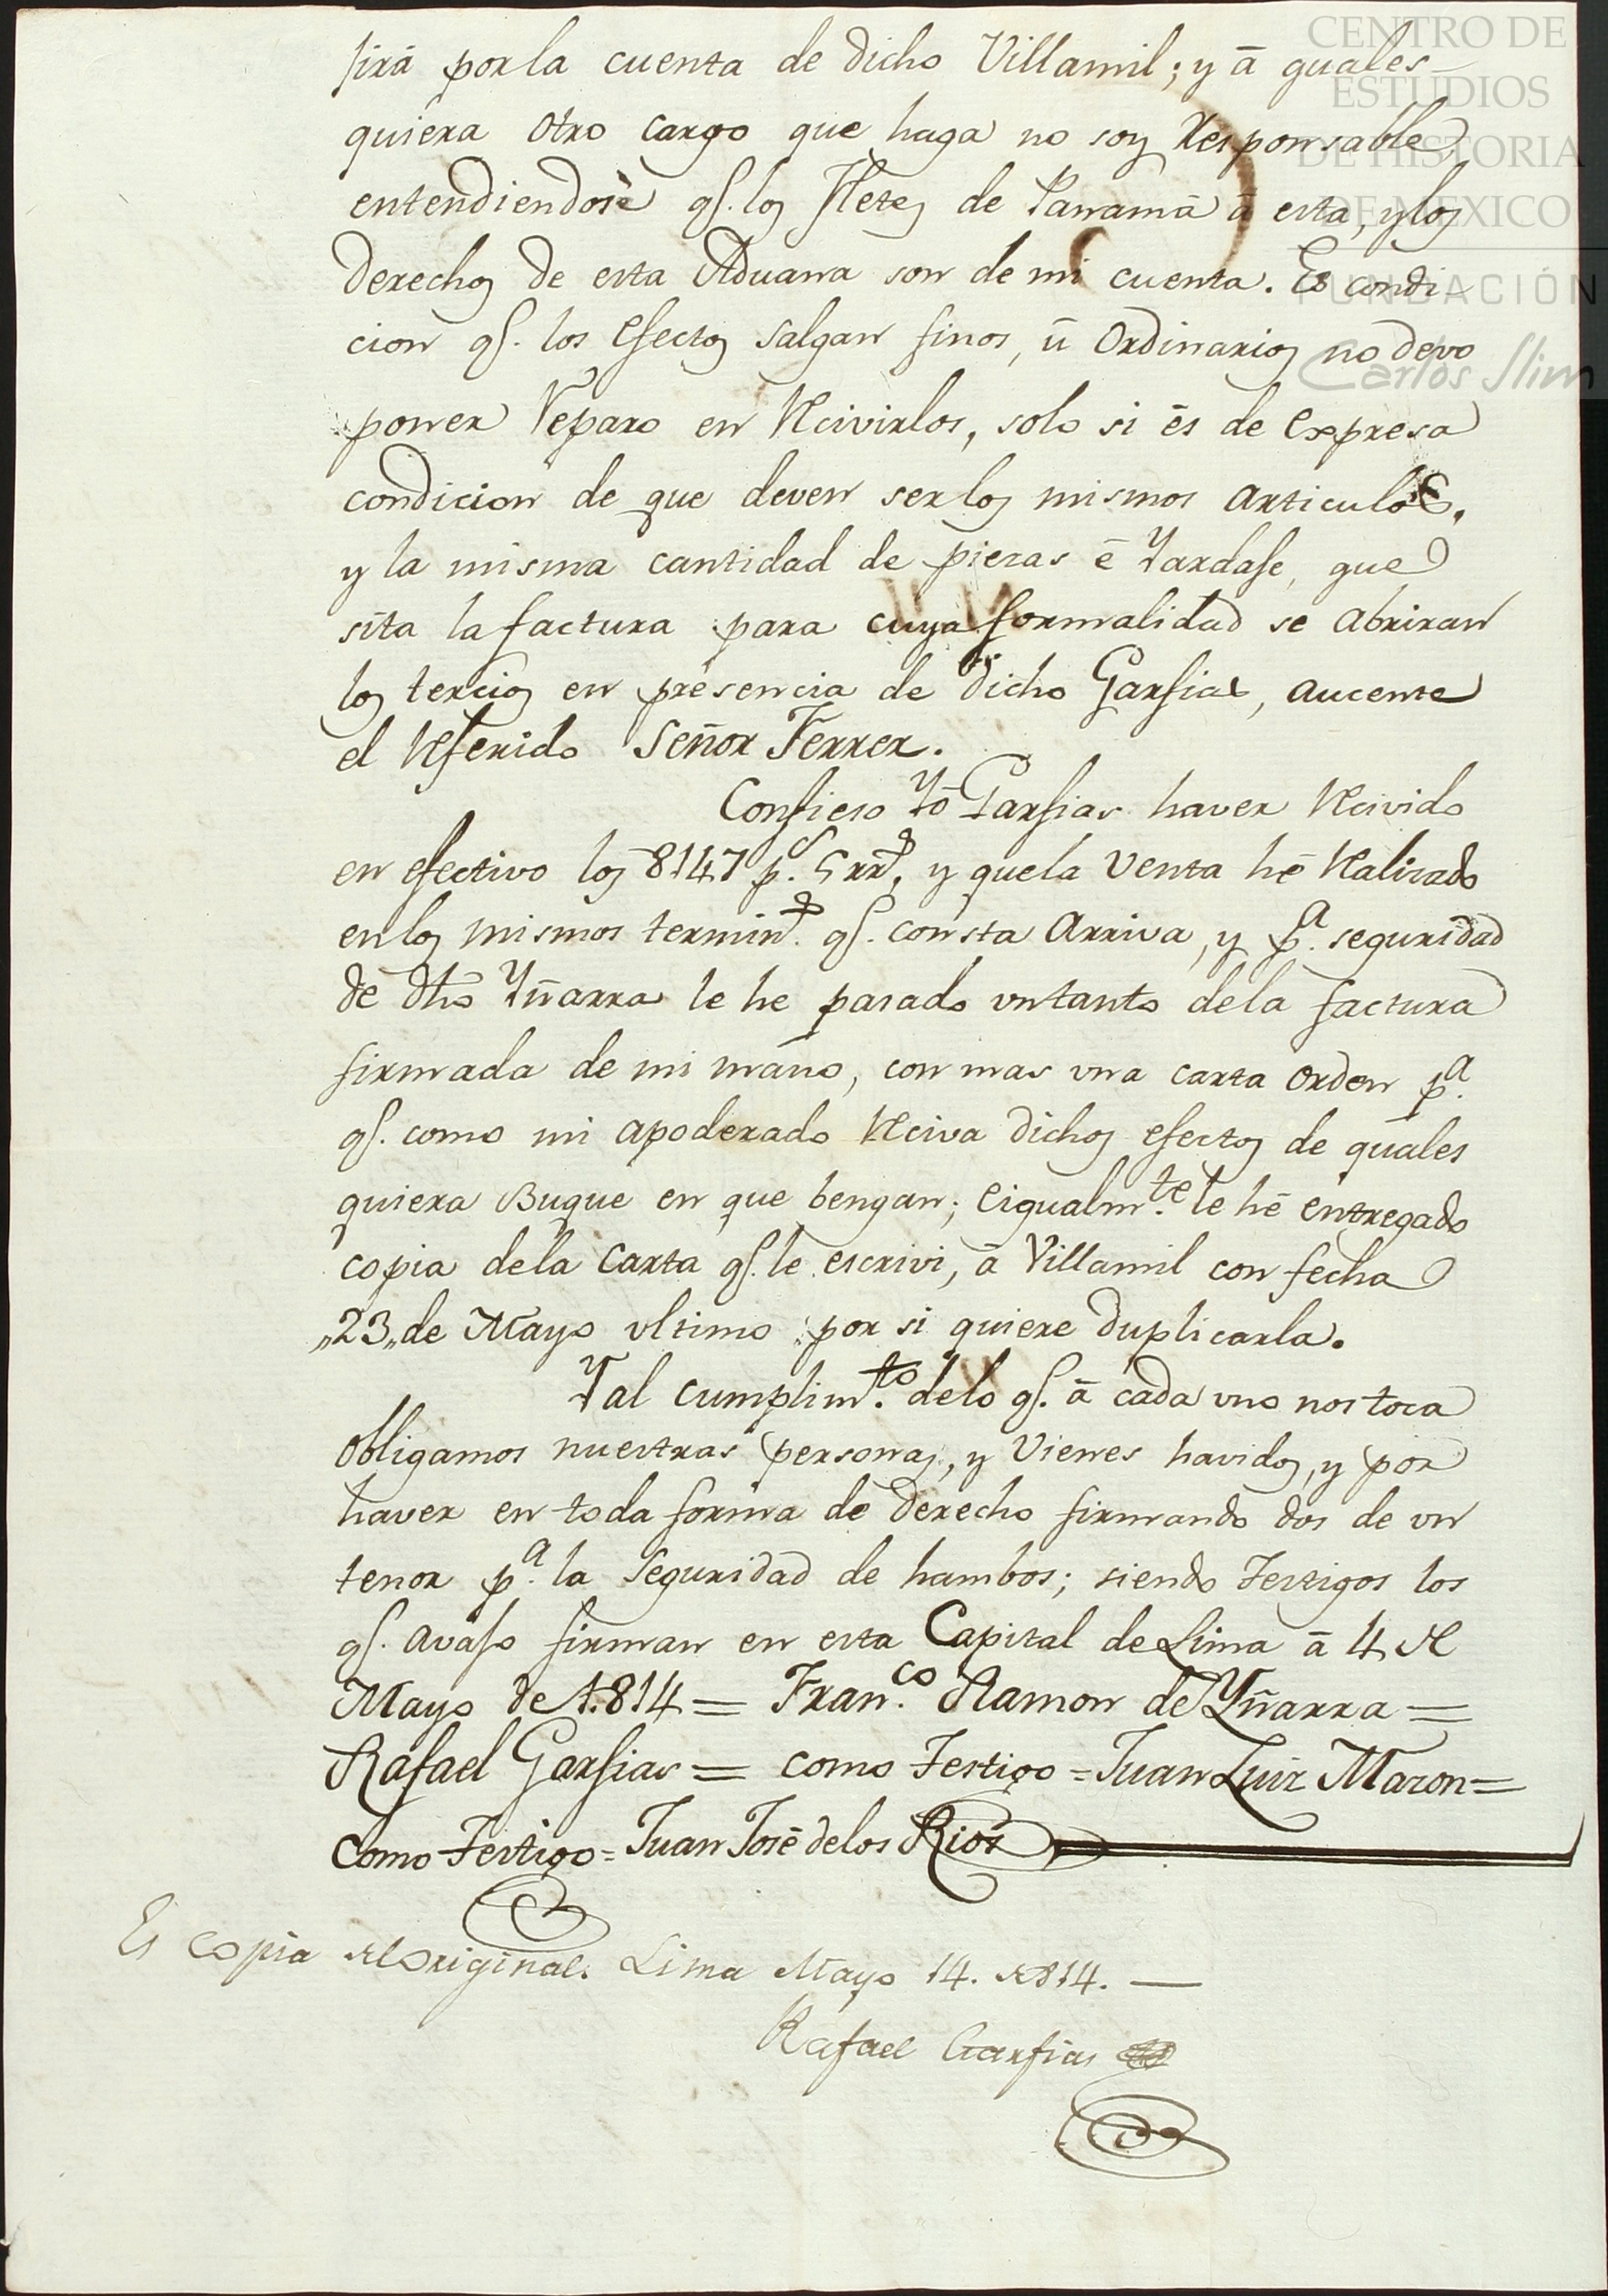 sirá por la cuenta de dicho Villamil; y á quales
quiera otro cargo que haga no soy Responsable,
entendiendose q.e los fletes de Panamá á esta, y los
derechos de esta Aduana son de mi cuenta. Es condi-
cion q.e los efectos salgan finos, ü ordinarios no devo
poner reparo en Recivirlos, solo si és de expresa
condicion de que deven ser los mismos articulos,
y la misma cantidad de piezas é Yardaje, que
sita la factura para cuya formalidad se abriran
los tercios en presencia de dicho Garfias, aucente
el Referido Señor Ferrer.
Confieso Yó Garfias haver Recivido
en efectivo los 8147 p.s 5 rr.s, y que la venta hé Realizado
en los mismos termin.s q.e consta Arriva, y p.a seguridad
de dho Yñarra le he pasado un tanto de la factura
firmada de mi mano, con mas una carta orden p.a
q.e como mi apoderado Reciva dichos efectos de quales
quiera Buque en que bengan; e igualm.te le hé entregado
copia de la Carta q.e le escrivi, á Villamil con fecha
„23„ de Mayo ultimo por si quiere duplicarla.
Y al cumplim.to de lo q.e á cada uno nos toca
obligamos nuestras personas, y Vienes havidos, y por
haver en toda forma de derecho firmando dos de un
tenor p.a la Seguridad de hambos; siendo Testigos los
q.e avajo firman en esta Capital de Lima á 4 de
Mayo de 1.814 = Fran.co Ramon de Yñarra =
Rafael Garfias = como Testigo = Juan Luiz Mazon =
Como Testigo = Juan José de los Rios
Es copia del Original. Lima Mayo 14. de 814. —
Rafael Garfias
CENTRO DE
ESTUDIOS
DE HISTORIA
DE MÉXICO
FUNDACIÓN
Carlos Slim